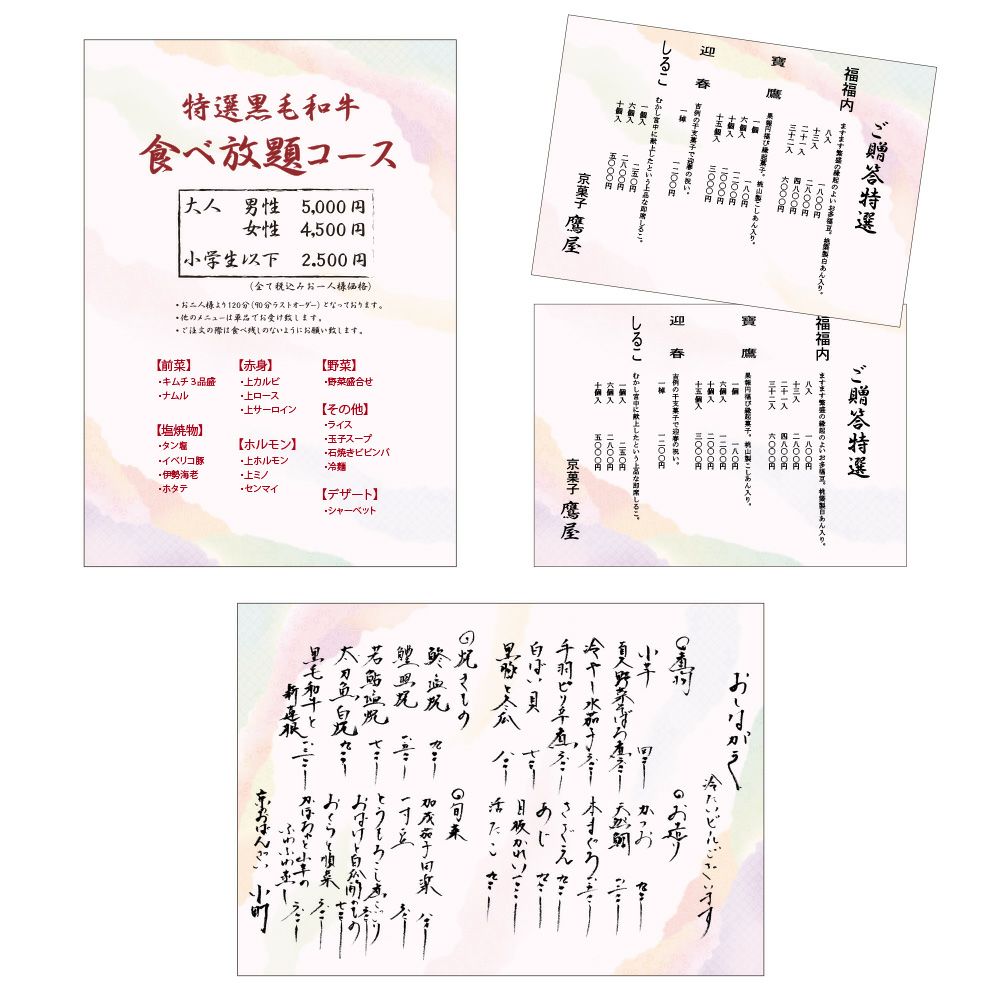 特選黒毛和牛
食べ放題コース
大人 男性 5,000円
女性 4,500円
小学生以下 2.500円
(全て税込みお一人様価格)
・お二人様より120分(90分ラストオーダー)となっております。
・他のメニューは単品でお受け致します。
・ご注文の際は食べ残しのないようにお願い致します。
【前菜】
・キムチ3品盛
・ナムル
【塩焼物】
・タン塩
・イベリコ豚
・伊勢海老
・ホタテ
【赤身】
・上カルビ
・上ロース
・上サーロイン
【ホルモン】
・上ホルモン
・上ミノ
・センマイ
【野菜】
・野菜盛合せ
【その他】
・ライス
・玉子スープ
・石焼きビビンバ
・冷麺
【デザート】
・シャーベット
ご贈答特選
福福内
ますます繁盛の縁起のよいお多福豆。桃山製白あん入り。
八入 一八〇〇円
十三入 二八〇〇円
二十一入 四八〇〇円
三十二入 六〇〇〇円
寶鷹
果報円福び縁起菓子。桃山製こしあん入り。
一個 一八〇円
六個入 一二〇〇円
十個入 二〇〇〇円
十五個入 三〇〇〇円
迎春
吉例の干支菓子で迎春の祝い。
一棹 一二〇〇円
しるこ
むかし宮中に献上したという上品な即席しるこ。
一個入 二五〇円
六個入 二八〇〇円
十個入 五〇〇〇円
京菓子 鷹屋
ご贈答特選
福福内
ますます繁盛の縁起のよいお多福豆。桃山製白あん入り。
八入 一八〇〇円
十三入 二八〇〇円
二十一入 四八〇〇円
三十二入 六〇〇〇円
寶鷹
果報円福び縁起菓子。桃山製こしあん入り。
一個 一八〇円
六個入 一二〇〇円
十個入 二〇〇〇円
十五個入 三〇〇〇円
迎春
吉例の干支菓子で迎春の祝い。
一棹 一二〇〇円
しるこ
むかし宮中に献上したという上品な即席しるこ。
一個入 二五〇円
六個入 二八〇〇円
十個入 五〇〇〇円
京菓子 鷹屋
おしながき
冷たいビールございます
小芋
冷やし水茄子
手羽ピリ辛煮
白ばい貝
黒豚と冬瓜
お造り
かつお
天然鯛
本まぐろ
さざえ
あじ
目板かれい
活たこ
焼きもの
鱧照焼
若鮎塩焼
太刀魚白焼
黒毛和牛と
新蓮根
旬菜
加茂茄子田楽
一寸豆
おくらと順菜
かぼちゃと小芋の
ふわふわ蒸し
京おばんざい 小町